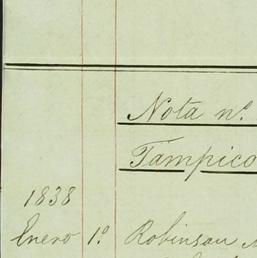 Nota nº.
Tampico
1838
Enero 1º Robinson